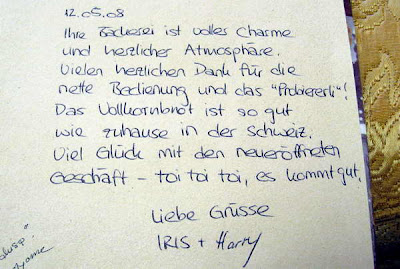 12.05.08
Ihre Bäckerei ist voller Charme
und herzlicher Atmosphäre.
Vielen herzlichen Dank für die
nette Bedienung und das "Probiererli"!
Das Vollkornbrot ist so gut
wie zuhause in der Schweiz.
Viel Glück mit den neueröffneten
Geschäft - toi toi toi, es kommt gut.
Liebe Grüsse
IRIS + Harry